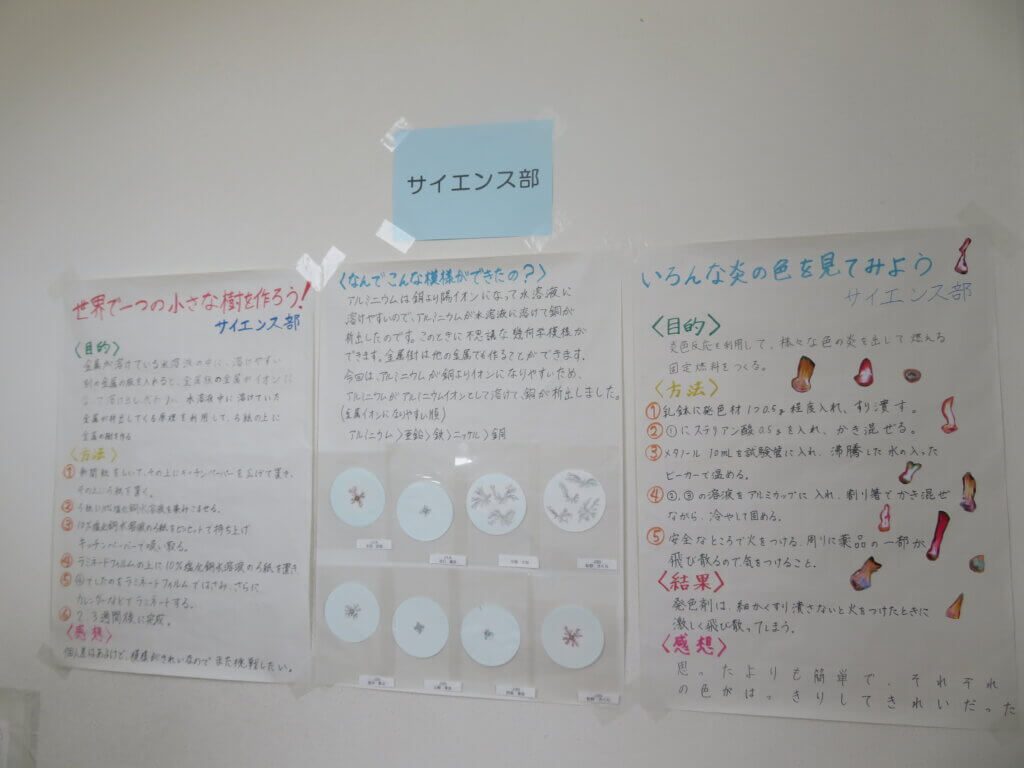 サイエンス部
世界で一つの小さな樹を作ろう!
サイエンス部
〈目的〉
金属が溶けている水溶液の中に、溶けやすい
別の金属の板を入れると、金属板の金属がイオンに
なって溶けだしたかわりに、水溶液中に溶けていた
金属が析出してくる原理を利用して、ろ紙の上に
金属の樹を作る
〈方法〉
① 新聞紙をしいて、その上にキッチンペーパーを広げて置き、
その上にろ紙を置く。
② ろ紙に10%塩化銅水溶液を染みこませる。
③ 10%塩化銅水溶液のろ紙をピンセットで持ち上げ
キッチンペーパーで吸い取る。
④ ラミネートフィルムの上に10%塩化銅水溶液のろ紙を置き
⑤ ④でしたのをラミネートフィルムではさみ、さらに
カレンダーなどでラミネートする。
⑥ 2、3週間後に完成。
〈感想〉
個人差はあるけど、模様がきれいなのでまた挑戦したい。
〈なんでこんな模様ができたの?〉
アルミニウムは銅より陽イオンになって水溶液に
溶けやすいので、アルミニウムが水溶液に溶けて銅が
析出したのです。このときに不思議な幾何学模様が
できます。金属樹は他の金属でも作ることができます。
今回は、アルミニウムが銅よりイオンになりやすいため、
アルミニウムがアルミニウムイオンとして溶けて、銅が析出しました。
(金属イオンになりやすい順)
アルミニウム〉亜鉛〉鉄〉ニッケル〉銅
いろんな炎の色を見てみよう
サイエンス部
〈目的〉
炎色反応を利用して、様々な色の炎を出して燃える
固定燃料をつくる。
〈方法〉
① 乳鉢に発色材1つ0.5g程度入れ、すり潰す。
② ①にステリアン酸0.5gを入れ、かき混ぜる。
③ メタノール10mLを試験管に入れ、沸騰した水の入った
ビーカーで温める。
④ ②、③の溶液をアルミカップに入れ、割り箸でかき混ぜ
ながら、冷やして固める。
⑤ 安全なところで火をつける。周りに薬品の一部が
飛び散るので気をつけること。
〈結果〉
発色剤は、細かくすり潰さないと火をつけたときに
激しく飛び散ってしまう。
〈感想〉
思ったよりも簡単で、それぞれ
の色がはっきりしてきれいだった